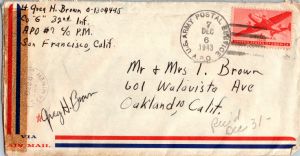 Lt. Greg H. Brown O-1309445
Co "G" 32nd Inf.
APO #7 c/o P.M.
San Francisco, Calif.
U.S. ARMY POSTAL SERVICE
7
DEC
6
1943
A.P.O.
Mr & Mrs I. Brown
601 Walavista Ave
Oakland 10 Calif.
Greg H Brown
Rec'd
Dec 31-
VIA
AIR MAIL